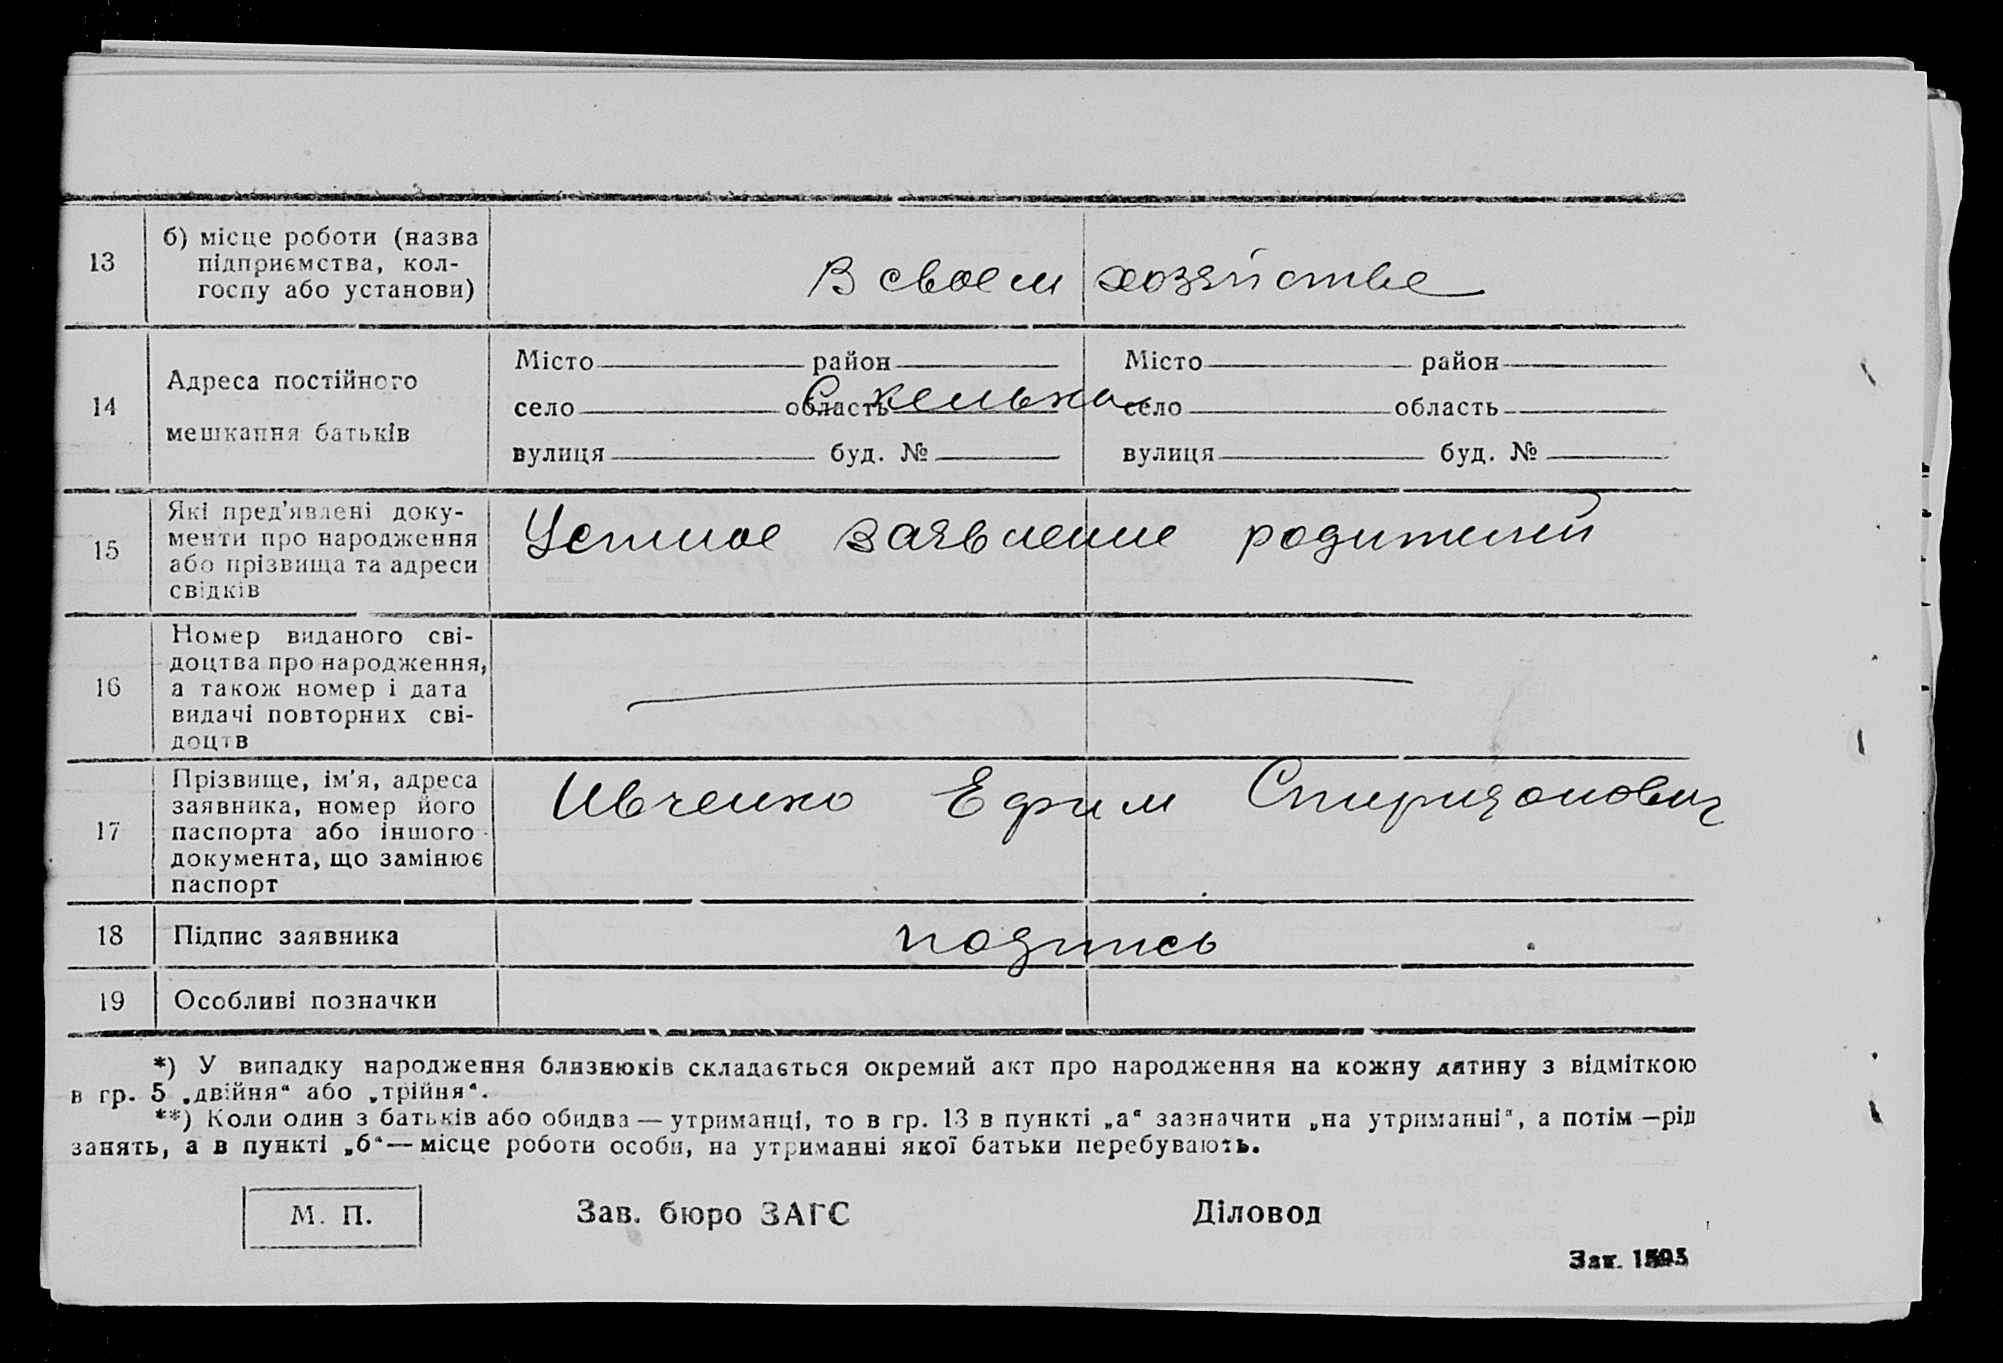 13
б) місце роботи (назва
підприємства, кол-
госпу або установи)
В своем хозяйстве
14
Адреса постійного
мешкання батьків
Місто район
село область
вулиця буд. №
Скелька
Місто район
село область
вулиця буд. №
15
Які пред'явлені доку-
менти про народження
або прізвища та адреси
свідків
Устное заявление родителей
16
Номер виданого сві-
доцтва про народження,
а також номер і дата
видачі повторних сві-
доцтв
17
Прізвище, ім'я, адреса
заявника, номер його
паспорта або іншого
документа, що замінює
паспорт
Ивченко Ефим Спиридонович
18
Підпис заявника
подпись
19
Особливі позначки
*) У випадку народження близнюків складається окремий акт про народження на кожну дитину з відміткою
в гр. 5 „двійня“ або „трійня“.
**) Коли один з батьків або обидва — утриманці, то в гр. 13 в пункті „а“ зазначити „на утриманні“, а потім — рід
занять, а в пункті „б“ — місце роботи особи, на утриманні якої батьки перебувають.
М. П.
Зав. бюро ЗАГС
Діловод
Зак.